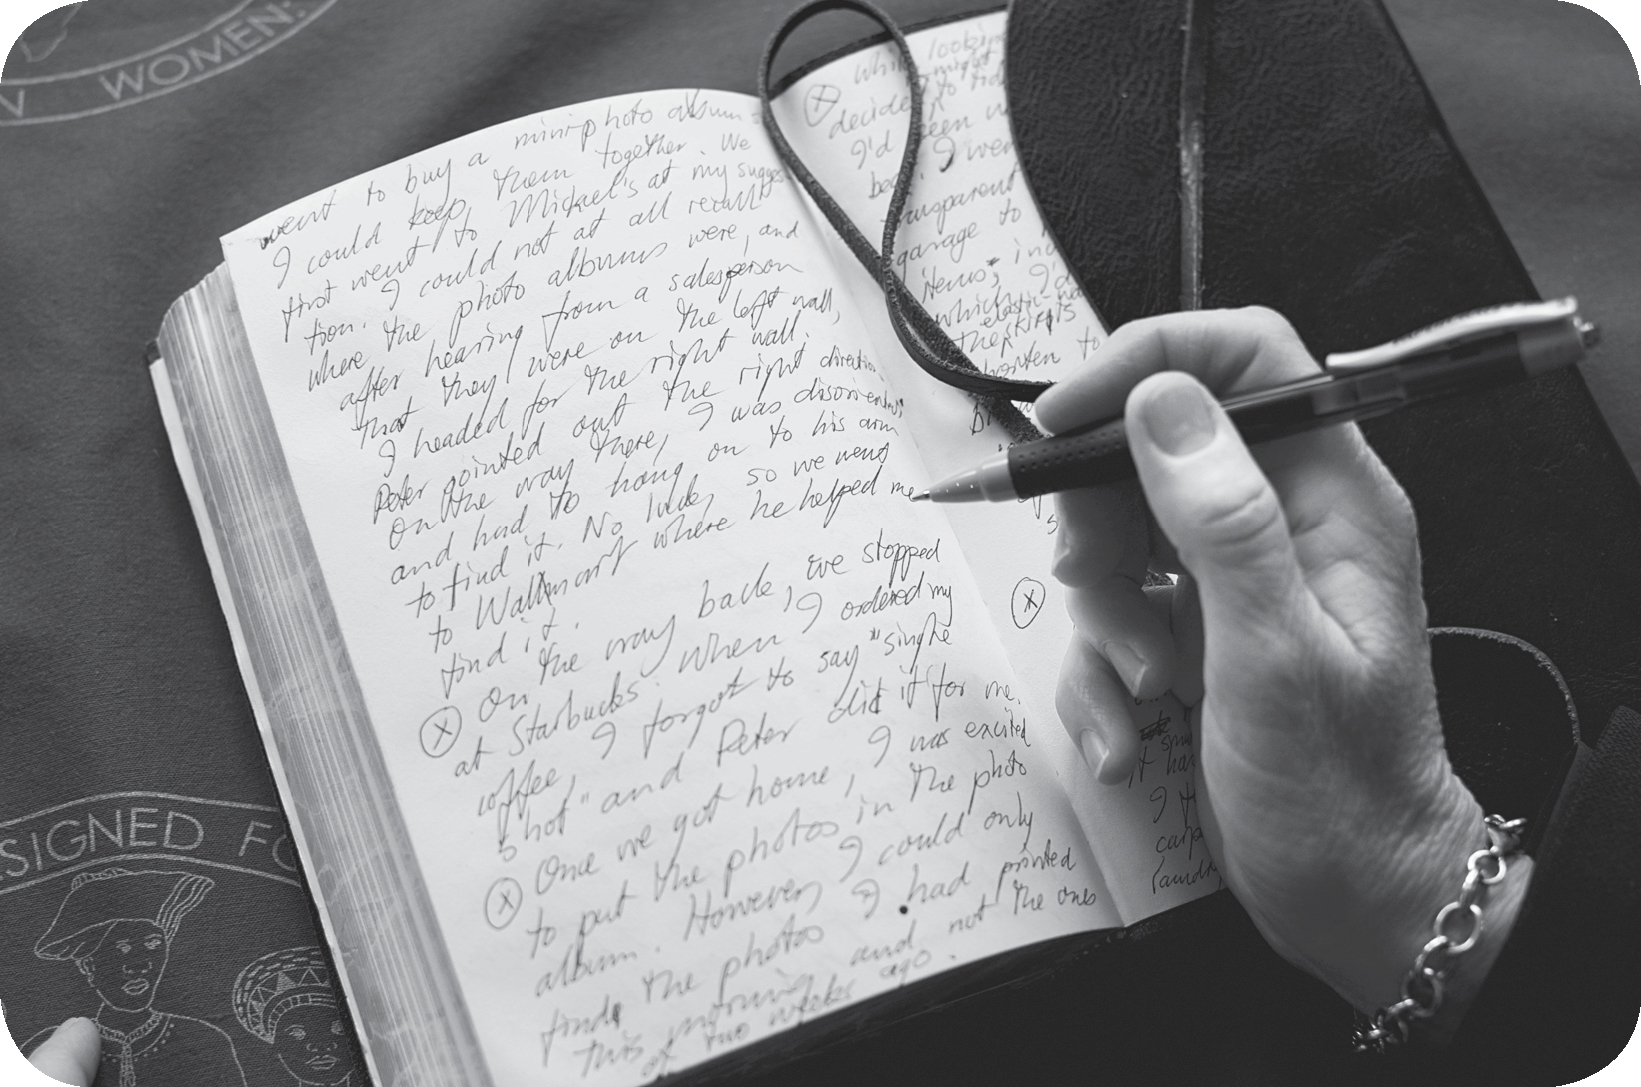 V WOMEN:
went to buy a mini photo album so
I could keep them together. We
first went to Michael's at my sugges
tion. I could not at all recall
where the photo albums were, and
after hearing from a salesperson
that they were on the left wall,
I headed for the right wall.
Peter pointed out the right direction.
On the way there, I was disoriented
and had to hang on to his arm
to find it. No luck, so we went
to Wallmart where he helped me
find it.
On the way back, we stopped
at Starbucks. When I ordered my
coffee, I forgot to say "single
shot" and Peter did it for me.
Once we got home, I was excited
to put the photos in the photo
album. However, I could only
find the photos I had printed
this morning and not the ones
of two weeks ago.
while looking
might
decided to
I'd been
I went
transparent
garage to
items,
which I'd
elastic
the skirts
to
X
it
I
laundry
SIGNED FO